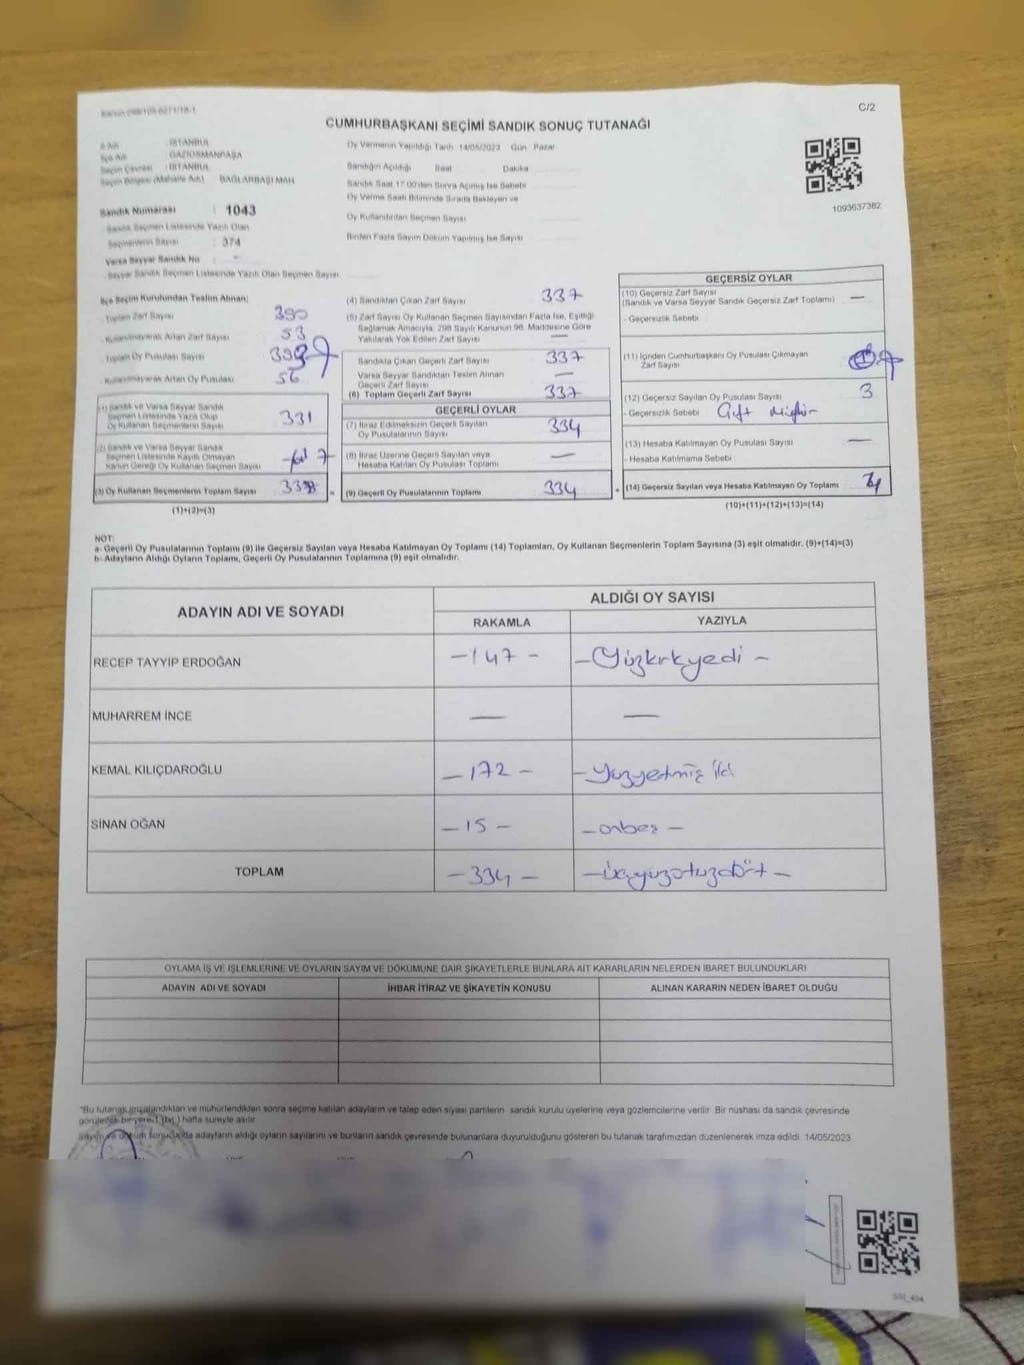 C/2
CUMHURBAŞKANI SEÇİMİ SANDIK SONUÇ TUTANAĞI
İl Adı : İSTANBUL
İlçe Adı : GAZİOSMANPAŞA
Seçim Çevresi : İSTANBUL
Seçim Bölgesi (Mahalle Adı) : BAĞLARBAŞI MAH
Sandık Numarası : 1043
Sandık Seçmen Listesinde Yazılı Olan
Seçmenlerin Sayısı : 374
Varsa Seyyar Sandık No : -
Seyyar Sandık Seçmen Listesinde Yazılı Olan Seçmen Sayısı
Oy Vermenin Yapıldığı Tarih 14/05/2023 Gün Pazar
Sandığın Açıldığı Saat Dakika
Sandık Saat 17:00'den Sonra Açılmış İse Sebebi
Oy Verme Saati Bitiminde Sırada Bekleyen ve
Oy Kullandırılan Seçmen Sayısı
Birden Fazla Sayım Döküm Yapılmış İse Sayısı
1093637382
İlçe Seçim Kurulundan Teslim Alınan;
- Toplam Zarf Sayısı 390
- Kullanılmayarak Artan Zarf Sayısı 53
- Toplam Oy Pusulası Sayısı
- Kullanılmayarak Artan Oy Pusulası 56
(1) Sandık ve Varsa Seyyar Sandık
Seçmen Listesinde Yazılı Olup
Oy Kullanan Seçmenlerin Sayısı 331
(2) Sandık ve Varsa Seyyar Sandık
Seçmen Listesinde Kayıtlı Olmayan
Kanun Gereği Oy Kullanan Seçmen Sayısı 7
(3) Oy Kullanan Seçmenlerin Toplam Sayısı 338
(1)+(2)=(3)
(4) Sandıktan Çıkan Zarf Sayısı 337
(5) Zarf Sayısı Oy Kullanan Seçmen Sayısından Fazla İse, Eşitliği
Sağlamak Amacıyla, 298 Sayılı Kanunun 98. Maddesine Göre
Yakılarak Yok Edilen Zarf Sayısı —
Sandıkta Çıkan Geçerli Zarf Sayısı 337
Varsa Seyyar Sandıktan Teslim Alınan
Geçerli Zarf Sayısı —
(6) Toplam Geçerli Zarf Sayısı 337
GEÇERLİ OYLAR
(7) İtiraz Edilmeksizin Geçerli Sayılan
Oy Pusulalarının Sayısı 334
(8) İtiraz Üzerine Geçerli Sayılan veya
Hesaba Katılan Oy Pusulası Toplamı —
(9) Geçerli Oy Pusulalarının Toplamı 334
GEÇERSİZ OYLAR
(10) Geçersiz Zarf Sayısı
(Sandık ve Varsa Seyyar Sandık Geçersiz Zarf Toplamı) —
- Geçersizlik Sebebi :
(11) İçinden Cumhurbaşkanı Oy Pusulası Çıkmayan
Zarf Sayısı
(12) Geçersiz Sayılan Oy Pusulası Sayısı 3
- Geçersizlik Sebebi : Çift Mühür
(13) Hesaba Katılmayan Oy Pusulası Sayısı —
- Hesaba Katılmama Sebebi :
(14) Geçersiz Sayılan veya Hesaba Katılmayan Oy Toplamı
(10)+(11)+(12)+(13)=(14)
NOT:
a- Geçerli Oy Pusulalarının Toplamı (9) ile Geçersiz Sayılan veya Hesaba Katılmayan Oy Toplamı (14) Toplamları, Oy Kullanan Seçmenlerin Toplam Sayısına (3) eşit olmalıdır. (9)+(14)=(3)
b- Adayların Aldığı Oyların Toplamı, Geçerli Oy Pusulalarının Toplamına (9) eşit olmalıdır.
ADAYIN ADI VE SOYADI ALDIĞI OY SAYISI
RAKAMLA YAZIYLA
RECEP TAYYİP ERDOĞAN -147- -Yüzkırkyedi-
MUHARREM İNCE — —
KEMAL KILIÇDAROĞLU -172- -Yüzyetmiş iki
SİNAN OĞAN -15- -onbeş-
TOPLAM -334- -üçyüzotuzdört-
OYLAMA İŞ VE İŞLEMLERİNE VE OYLARIN SAYIM VE DÖKÜMÜNE DAİR ŞİKAYETLERLE BUNLARA AİT KARARLARIN NELERDEN İBARET BULUNDUKLARI
ADAYIN ADI VE SOYADI İHBAR İTİRAZ VE ŞİKAYETİN KONUSU ALINAN KARARIN NEDEN İBARET OLDUĞU
*Bu tutanak imzalandıktan ve mühürlendikten sonra seçime katılan adayların ve talep eden siyasi partilerin sandık kurulu üyelerine veya gözlemcilerine verilir. Bir nüshası da sandık çevresinde
görülebilir bir yere 1 (bir) hafta süreyle asılır
Sayım ve döküm sonucunda adayların aldığı oyların sayılarını ve bunların sandık çevresinde bulunanlara duyurulduğunu gösteren bu tutanak tarafımızdan düzenlenerek imza edildi. 14/05/2023